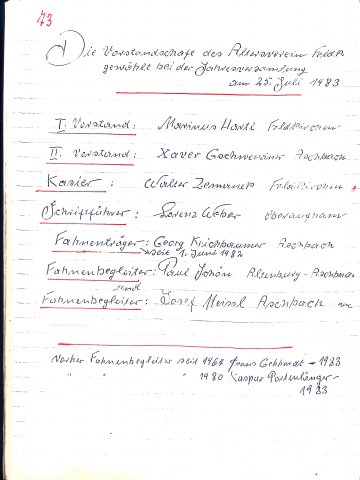 73
Die Vorstandschaft des Altersverein Feldk
gewählt bei der Jahresversammlung
am 25. Juli 1983
I. Vorstand: Marinus Hartl Feldkirchen
II. Vorstand: Xaver Gschwendner Aschbach
Kasier: Walter Zemanek Feldkirchen
Schriftführer: Lorenz Weber Oberaugham
Fahnenträger: Georg Kirchbaumer Aschbach
seit 1. Juni 1982
Fahnenbegleiter: Paul Altenburg - Aschbach
und
Fahnenbegleiter: Josef Meissl Aschbach
Vorher Fahnenbegleiter seit 1964 Franz Gebhardt - 1983
" " " 1980 Kaspar -
1983